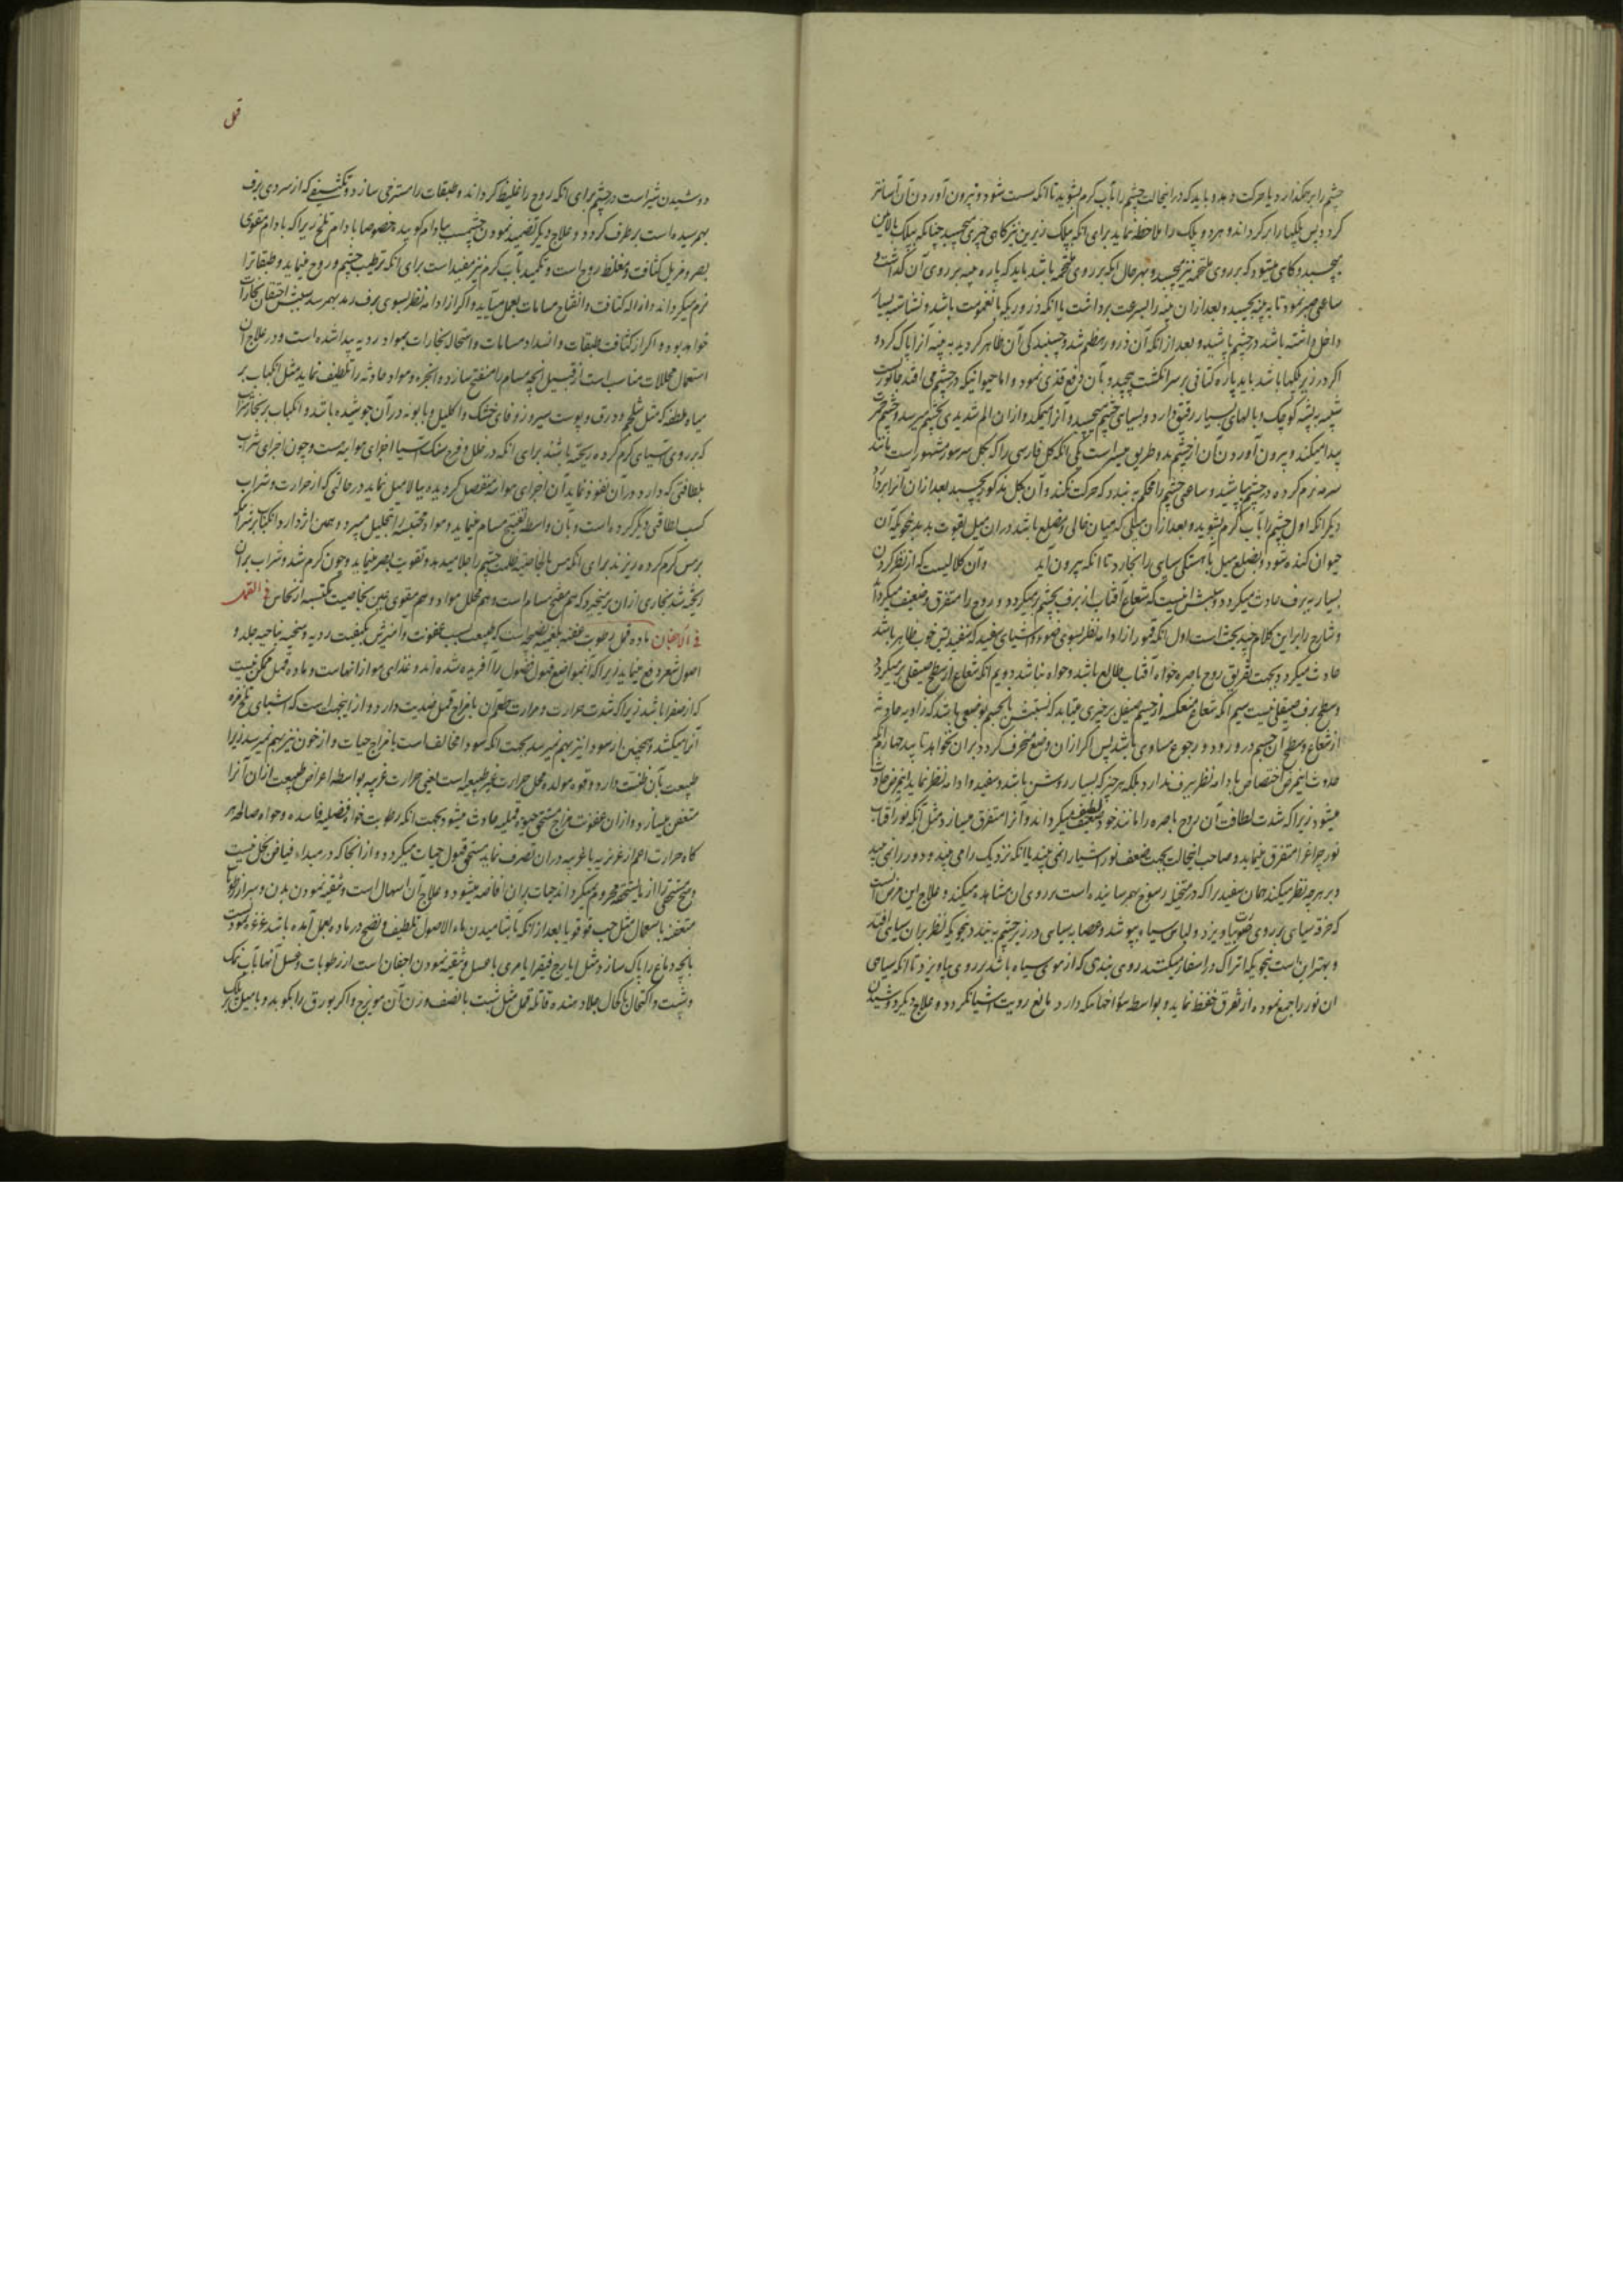 چشم را بر همگذارد یا حرکت دهد و باید که در اینحالت چشم را بآب گرم بشوید تا انکه سست شود و بیرون آوردن آن آسانتر
کردد پس پلکها را برکرداند و هر دو پلک را ملاحظه نماید برای انکه بپلک زیرین نیز کاهی چیزی میچسبد چنانکه بپلک بالایین
میچسبد و کاهی میشود که بر روی ملتحمه نیز بچسبد و بهر حال انکه بر روی ملتحمه باشد باید که پاره پنبه بر روی آن گذاشت و
ساعتی صبر نمود تا به پنبه بچسبد و بعد ازان پنبه را بسرعت برداشت یا انکه ذروریکه با نغمومت باشد و نشاسته بسیار
داخل داشته باشد در چشم پاشید و بعد از انکه آن ذرور منظم شد و چسبندکی آن ظاهر کردید به پنبه آنرا پاک کرد و
اکر در زیر پلکها باشد باید پاره کتانی بر سر انکشت پیچید و بآن رفع قذی نمود و اما حیوانیکه در چشم می افتد جانوریست
شبیه به پشه کوچک و بالهای بسیار رقیق دارد و بسیاهی چشم میچسبد و آنرا میمکد و ازان الم شدیدی بچشم میرسد و چشم سرخی
پیدا میکند و بیرون آوردن آن از چشم بدو طریق میسر است یکی انکه کل فارسی را که بکل سرشور مشهور است مانند
سرمه نرم کرده در چشم پاشید و ساعتی چشم را محکم به بندد که حرکت نکند و آن بکل مذکور بچسبد بعد ازان آنرا بردارد
دیکر انکه اول چشم را بآب گرم بشوید و بعد ازان میلی که میان خالی و مضلع باشد دران میل بقوت بدمد بنحویکه آن
حیوان کنده شود و بضلع میل باهستکی سیاهی را بخارد تا انکه بیرون آید و آن کلالیست که از نظر کردن
بسیار به برف حادث میکردد و سببش اینست که شعاع آفتاب از برف بچشم برمیکردد و روح را متفرق و ضعیف میکرداند
و شارح را بر این کلام چند بحث است اول انکه قمور از ادامه نظر بسوی ضوء و اشیای سفید که سفیدیش خوب ظاهر باشد
حادث میکردد بجهت تفریق روح باصره خواه آفتاب طالع باشد و خواه نباشد دویم انکه شعاع از سطح صیقلی برمیکردد
و سطح برف صیقلی نیست سیم انکه شعاع منعکسه از جسم صیقل بر چیزی میتابد که نسبتش با آنجسم بوضعی باشد که زاویه حادثه
از شعاع و سطح آن جسم در ورود و رجوع مساوی باشد پس اکر ازان وضع منحرف کردد بران نخواهد تابید چهارم انکه
حدوث اینمرض اختصاص بادامه نظر ببرف ندارد بلکه هر چیز که بسیار روشن باشد و سفید و ادامه نظر نماید اینمرض حادث
میشود زیرا که شدت لطافت آن روح باصره را مانند خود لطیف و ضعیف میکرداند و آنرا متفرق میسازد مثل آنکه نور آفتاب
نور چراغ را متفرق مینماید و صاحب اینحالت بجهت ضعف نور اشیا را نمی بیند یا انکه نزدیک را می بیند و دور را نمی بیند
و بر هر چه نظر میکند همان سفیدیرا که در متخیله رسوخ بهمرسانیده است بر روی ان مشاهده میکند و علاج این مرض انست
که خرقه سیاهی بر روی خود بیاویزد و لباس سیاه بپوشد و عصابه سیاهی در زیر چشم به بندد بنحویکه نظر بران سیاهی افتد
و بهتر این است بنحویکه اتراک در اسفار میکنند روی بندی که از موی سیاه باشد بر روی بیاویزد تا انکه سیاهی
ان نور را جمع نموده از تفرق حفظ نماید و بواسطه سوراخهائیکه دارد مانع رویت اشیا نکردد و علاج دیکر دوشیدن
قمل
دوشیدن شیر است در چشم برای انکه روح را غلیظ کرداند و طبقات را مسترخی سازد و تکثیفی که از سردی برف
بهمرسیده است بر طرف کردد و علاج دیکر تضمید نمودن چشم است ببادام کوبیده خصوصا بادام تلخ زیرا که بادام مقوی
بصر و مزیل کثافت و مغلظ روح است و تکمید بآب گرم نیز مفید است برای انکه ترطیب چشم و روح مینماید و طبقاترا
نرم میکرداند و ازاله کثافت و انفتاح مسامات بعمل میآید و اکر از ادامه نظر بسوی برف رمد بهمرسد سببش احتقان بخارات
خواهد بود و اکر از کثافت طبقات و انسداد مسامات و استحاله بخارات بمواد ردیه پیدا شده است و در علاج ان
استعمال محللات مناسب است از قبیل انچه مسام را منفتح سازد و ابخره و مواد حادثه را تلطیف نماید مثل انکباب بر
میاه ملطفه که مثل شلجم و ورق و پوست سیر و زوفای خشک و اکلیل و بابونه در آن جوشیده باشد و انکباب بر بخار شراب
که بر روی آسیای گرم کرده ریخته باشند برای انکه در خلل و فرج سنک آسیا اجزای هوائیه هست و چون اجزای شراب
بلطافتی که دارد در آن نفوذ نماید آن اجزای هوائیه منفصل کردیده ببالا میل نماید در حالتی که از حرارت و شراب
کسب لطافتی دیکر کرده است و بآن واسطه تفتیح مسام مینماید و مواد محتبسه را بتحلیل میبرد و همین اثر دارد انکباب بر شرابیکه
بر مس گرم کرده ریزند برای انکه مس بالخاصیه ظلمت چشم را جلا میدهد و تقویت بصر مینماید و چون گرم شد و شراب بران
ریخته شد بخاری ازان برمیخیزد که هم مفتح مسام است و هم محلل مواد و هم مقوی عین بخاصیت مکتسبه از نحاس فی القمل
فی الاجفان ماده قمل رطوبت عفنه بلغمیه نضیجه است که طبیعت بسبب عفونت و آمیزش بکیفیت ردیه و سخیه بناحیه جلد و
اصول شعر دفع مینماید زیرا که آنمواضع قبول فضول را آفریده شده اند و غذای مو از انهاست و ماده قمل ممکن نیست
که از صفرا باشد زیرا که شدت حرارت و مرارت طعم آن با مزاج قمل ضدیت دارد و از اینجهت است که اشیای تلخ مزه
آنرا میکشد و همچنین از سودا نیز بهم نمیرسد بجهت انکه سودا مخالف است با مزاج حیات و از خون نیز بهم نمیرسد زیرا
طبیعت بآن ظنت دارد و قوه مولده محل حرارت غیر طبیعیه است یعنی حرارت غریبه بواسطه اعراض طبیعت ازان آنرا
متعفن میسازد و ازان عفونت مزاج مستحق حیوه قملیه حادث میشود بجهت انکه رطوبت خواه فضلیه فاسده و خواه صالحه هر
کاه حرارت اعم از غریزیه یا غریبه دران تصرف نماید مستحق قبول حیات میکردد و از انجا که در مبداء فیاض بخل نیست
و هیچ مستحقی را از ما یستحقه محروم نمیکرداند حیات بران افاضه میشود و علاج آن اسهال است و تنقیه نمودن بدن و سر از رطوبات
متعفنه باستعمال مثل حب قوقویا بعد از انکه بآشامیدن ماء الاصول تلطیف و نضج در ماده بعمل آمده باشد و غرغره نمودن
بانچه دماغ را پاک سازد مثل ایارج فیقرا یا مری با عسل و تنقیه نمودن اجفان است از رطوبات و غسل آنها بآب نمک
و شبت و اکتحال باکحال جلا دهنده قاتله قمل مثل شبت با نصف وزن آن مویزج و اکر بورق را بکوبد و با میل بر پلک